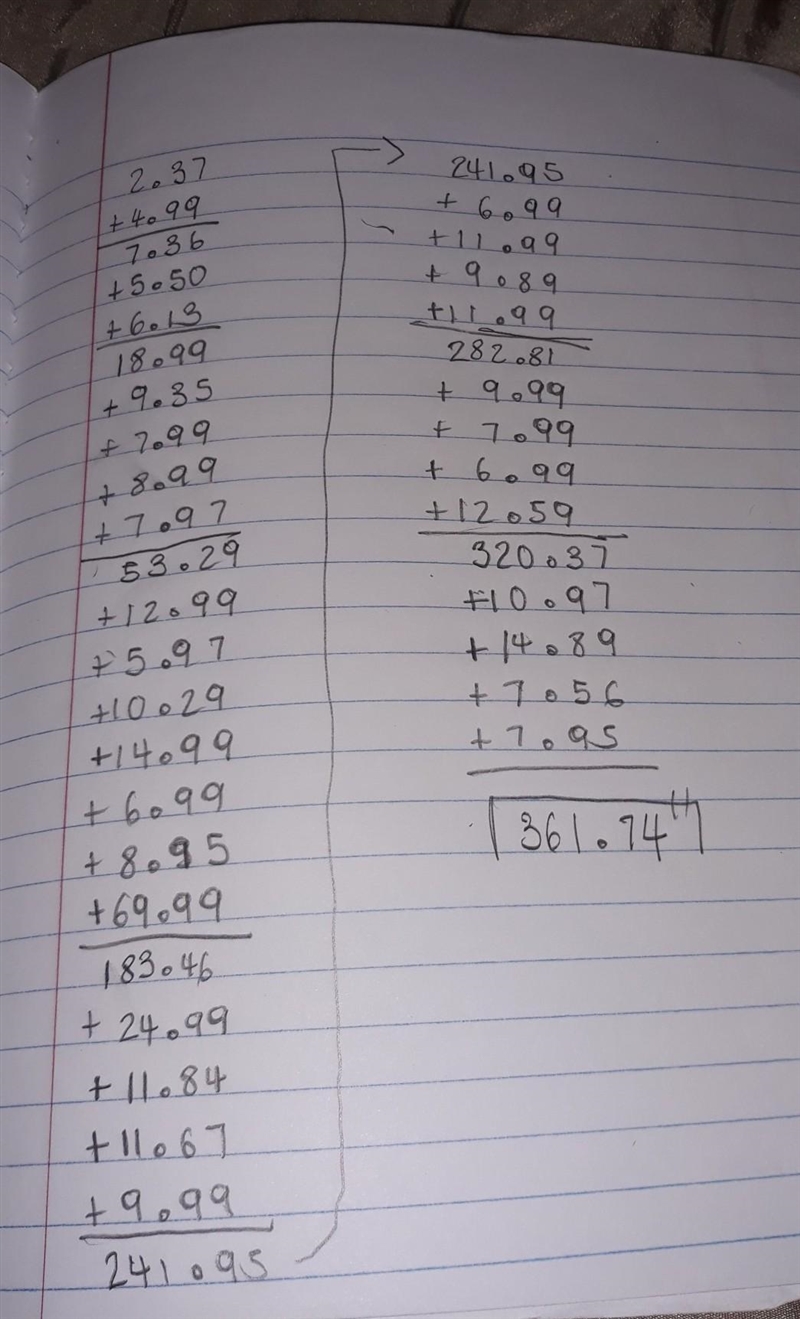 2.37
+4.99
7.36
+5.50
+6.13
18.99
+9.35
+7.99
+8.99
+7.97
53.29
+12.99
+5.97
+10.29
+14.99
+6.99
+8.95
+69.99
183.46
+24.99
+11.84
+11.67
+9.99
241.95
241.95
+6.99
+11.99
+9.89
+11.99
282.81
+9.99
+7.99
+6.99
+12.59
320.37
+10.97
+14.89
+7.56
+7.95
361.74